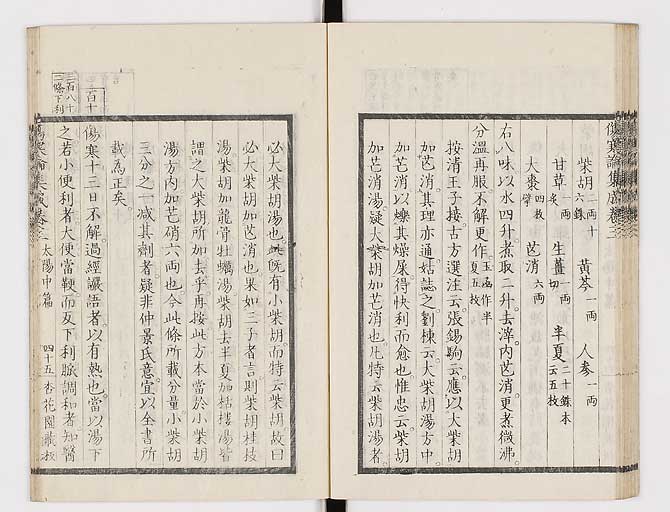 傷寒論集成卷三
柴胡 二両十六銖 黄芩 一両 人参 一両
甘草 一両炙 生薑 一両切 半夏 二十銖本云五枚
大棗 四枚擘 芒消 六両
右八味以水四升煮取二升去滓内芒消更煮微沸
分溫再服不解更作 玉函作半夏五枚
按清王子接古方選注云張錫駒云應以大柴胡
加芒消其理亦通姑誌之劉棟云大柴胡湯方中
加芒消以爍其燥屎得快利而愈也惟忠云柴胡
加芒消湯疑大柴胡加芒消也凡特云柴胡湯者
必大柴胡湯也既有小柴胡而特云柴胡故曰
必大柴胡加芒消也果如三子者言則柴胡桂枝
湯柴胡加龍骨牡蠣湯柴胡去半夏加栝樓湯皆
謂之大柴胡所加去乎再按此方本當於小柴胡
湯方内加芒硝六両也今此條所載分量小柴胡
三分之一減其劑者疑非仲景氏意宜以全書所
載為正矣
傷寒十三日不解過經譫語者以有熱也當以湯下
之若小便利者大便當鞕而反下利脈調和者知醫
太陽中篇 四十五 杏花園蔵板